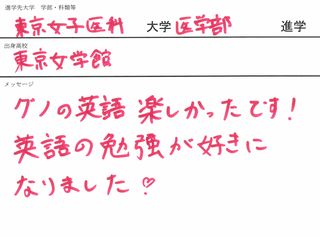 進学先大学 学部・科類等
東京女子医科 大学 医学部 進学
出身高校
東京女学館
メッセージ
グノの英語 楽しかったです!
英語の勉強が好きに
なりました♡